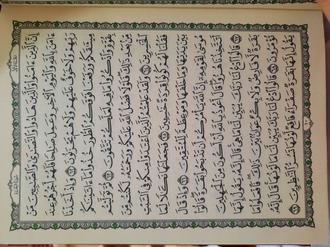 إِنَّ الَّذِينَ ءَامَنُوا وَالَّذِينَ هَادُوا وَالنَّصَٰرَىٰ وَالصَّٰبِـِٔينَ مَنْ
ءَامَنَ بِاللَّهِ وَالْيَوْمِ الْءَاخِرِ وَعَمِلَ صَٰلِحًا فَلَهُمْ أَجْرُهُمْ عِندَ
رَبِّهِمْ وَلَا خَوْفٌ عَلَيْهِمْ وَلَا هُمْ يَحْزَنُونَ ٦٢ وَإِذْ أَخَذْنَا
مِيثَٰقَكُمْ وَرَفَعْنَا فَوْقَكُمُ الطُّورَ خُذُوا مَا ءَاتَيْنَٰكُم
بِقُوَّةٍ وَاذْكُرُوا مَا فِيهِ لَعَلَّكُمْ تَتَّقُونَ ٦٣ ثُمَّ تَوَلَّيْتُم
مِّن بَعْدِ ذَٰلِكَ فَلَوْلَا فَضْلُ اللَّهِ عَلَيْكُمْ وَرَحْمَتُهُ لَكُنتُم مِّنَ
الْخَٰسِرِينَ ٦٤ وَلَقَدْ عَلِمْتُمُ الَّذِينَ اعْتَدَوْا مِنكُمْ فِي السَّبْتِ
فَقُلْنَا لَهُمْ كُونُوا قِرَدَةً خَٰسِـِٔينَ ٦٥ فَجَعَلْنَٰهَا نَكَٰلًا لِّمَا
بَيْنَ يَدَيْهَا وَمَا خَلْفَهَا وَمَوْعِظَةً لِّلْمُتَّقِينَ ٦٦ وَإِذْ قَالَ
مُوسَىٰ لِقَوْمِهِ إِنَّ اللَّهَ يَأْمُرُكُمْ أَن تَذْبَحُوا بَقَرَةً قَالُوا
أَتَتَّخِذُنَا هُزُوًا قَالَ أَعُوذُ بِاللَّهِ أَنْ أَكُونَ مِنَ الْجَٰهِلِينَ ٦٧
قَالُوا ادْعُ لَنَا رَبَّكَ يُبَيِّن لَّنَا مَا هِيَ قَالَ إِنَّهُ يَقُولُ إِنَّهَا
بَقَرَةٌ لَّا فَارِضٌ وَلَا بِكْرٌ عَوَانٌ بَيْنَ ذَٰلِكَ فَافْعَلُوا مَا
تُؤْمَرُونَ ٦٨ قَالُوا ادْعُ لَنَا رَبَّكَ يُبَيِّن لَّنَا مَا لَوْنُهَا قَالَ إِنَّهُ
يَقُولُ إِنَّهَا بَقَرَةٌ صَفْرَاءُ فَاقِعٌ لَّوْنُهَا تَسُرُّ النَّٰظِرِينَ ٦٩